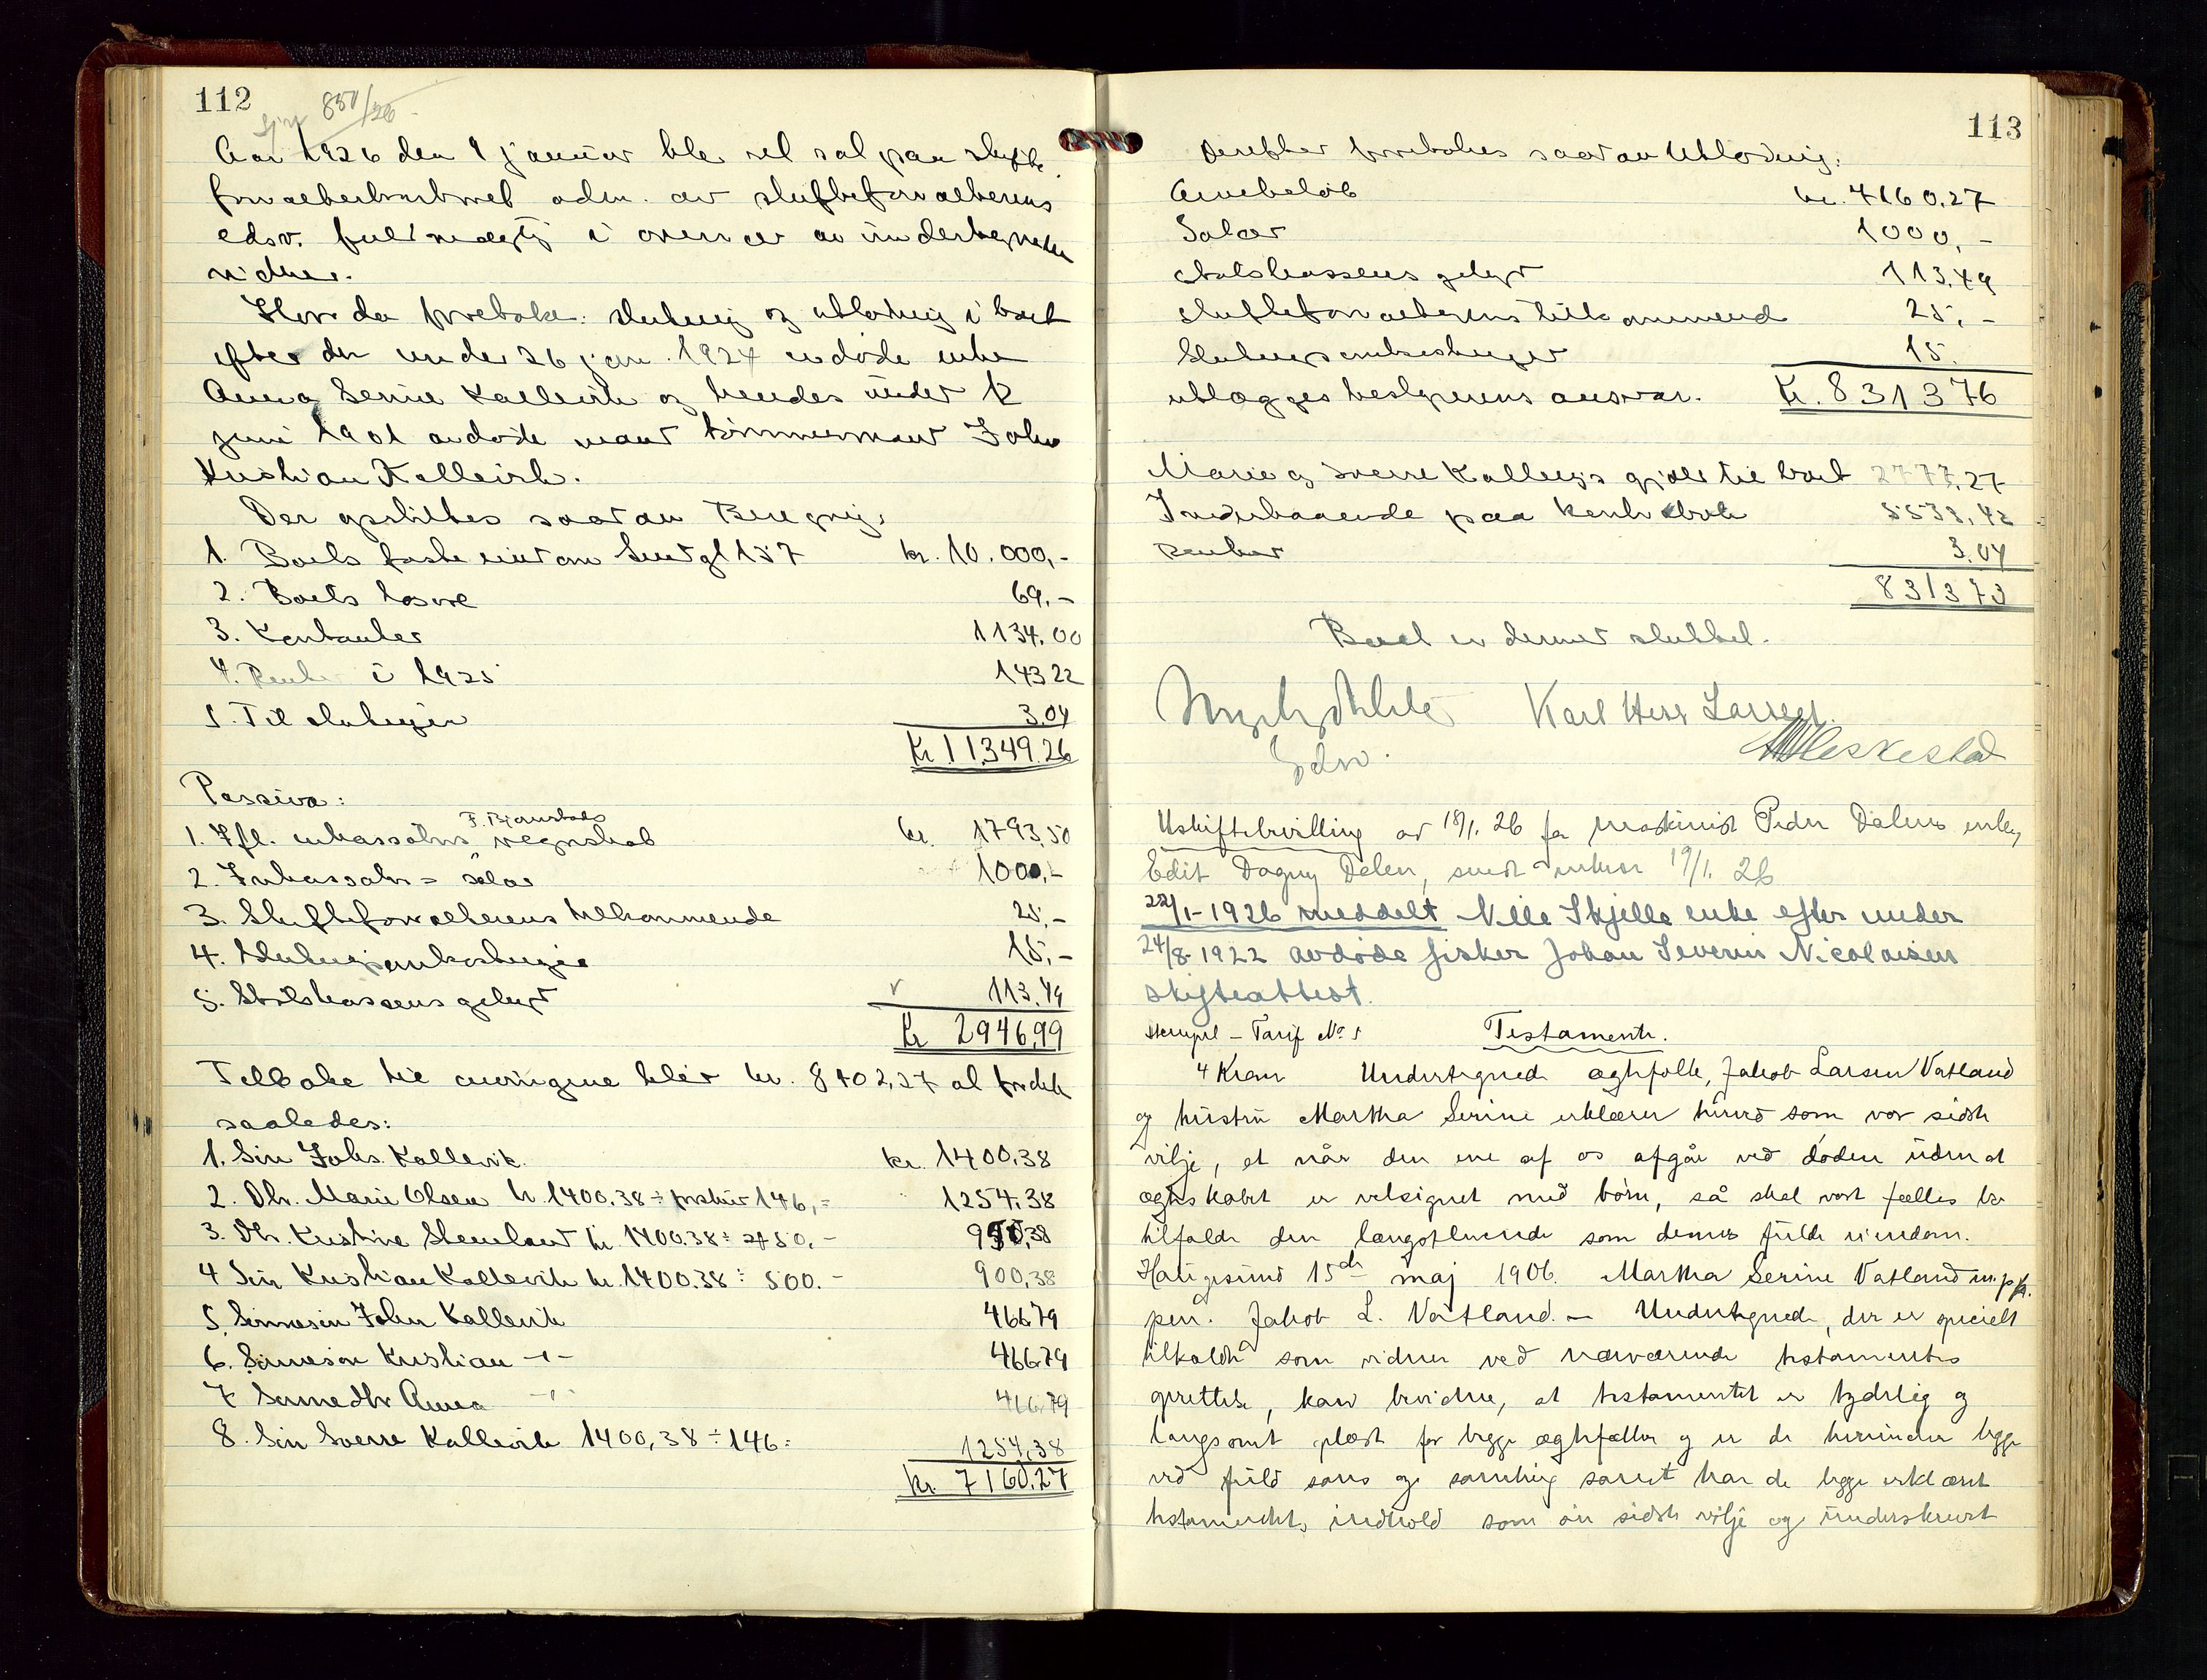 112
851/26
Aar 1926 den 9 januar blev ret sat paa skifte
forvalterkontoret adm. av skifteforvalterens
edsv. fuldmægtig i overvær av undertegnede
vidner.
Hvor da foretokes: slutning og utlodning i boet
efter den under 26 jan. 1924 avdøde enke
Anna Serine Kallevik og hendes under 12
juni 1901 avdøde mand tømmermand John
Kristian Kallevik.
Der opstilles saadan Beregning:
1. Boets faste eiendom Smedgt 157 kr. 10.000,-
2. Boets løsøre 69,-
3. Kontanter 1134.00
4. Renter i 1925 143 22
5. Til slutningen 3.04
Kr 11349.26
Passiva:
1. Ifl. inkassators F. Bjørnstads regnskab kr. 1793,50
2. Inkassators salær 1000,-
3. Skifteforvalterens tilkommende 25,-
4. Slutningsomkostninger 15,-
5. Statskassens gebyr 113.49
Kr 2946,99
Tilbake til arvingene blir kr. 8402,27 at fordele
saaledes:
1. Søn Johs. Kallevik kr. 1400,38
2. Dtr. Marie Olsen kr. 1400.38 ÷ forskud 146,- 1254,38
3. Dtr. Kristine Steneland kr. 1400.38 ÷ 450,- 950,38
4 Søn Kristian Kallevik kr. 1400.38 ÷ 500.- 900,38
5. Sønnesøn John Kallevik 466.79
6. Sønnesøn Kristian -"- 466.79
7 Sønnedtr Anna -"- 466.79
8. Søn Sverre Kallevik 1400,38 ÷ 146: 1254,38
kr. 7160.27
113
Derefter foretokes saadan Utlodning:
Arvebeløb kr. 7160,27
Salær 1000,-
Statskassens gebyr 113,49
Skifteforvalterens tilkommend 25,-
Slutningsomkostninger 15.
utlægges bestyrerens ansvar. Kr. 8313 76
Marie og Sverre Kalleviks gjæld til boet 2777,27
Indestaaende paa kontrabok 5533,42
Renter 3.04
8313 73
Boet er dermed sluttet.
Karl Herr Larsen
Edsv.
Hleskestad
Uskiftebevilling av 18/1. 26 for maskinist Peder Dalens enke,
Edit Dagny Dalen, sendt 19/1. 26
22/1-1926 meddelt Nille Skjelle enke efter under
24/8-1922 avdøde fisker Johan Severin Nicolaisen
skifteattest.
Stempel - Tarif No 5 Testamente.
4 Kroner Undertegnede ægtefolk, Jakob Larsen Vatland
og hustru Martha Serine erklærer herved som vor sidste
vilje, at når den ene af os afgår ved døden uden at
ægteskabet er velsignet med børn, så skal vort fælles bo
tilfalde den længstlevende som dennes fulde eiendom.
Haugesund 15de maj 1906. Martha Serine Vatland m.p.p.
pen. Jakob L. Vatland. - Undertegnede, der er specielt
tilkaldte som vidner ved nærværende testamentes
oprettelse, kan bevidne, at testamentet er tydelig og
langsomt oplæst for begge ægtefæller og er de herunder begge
ved fuld sans og samling samt har de begge erklæret
testamentets indhold som sin sidste vilje og underskrevet